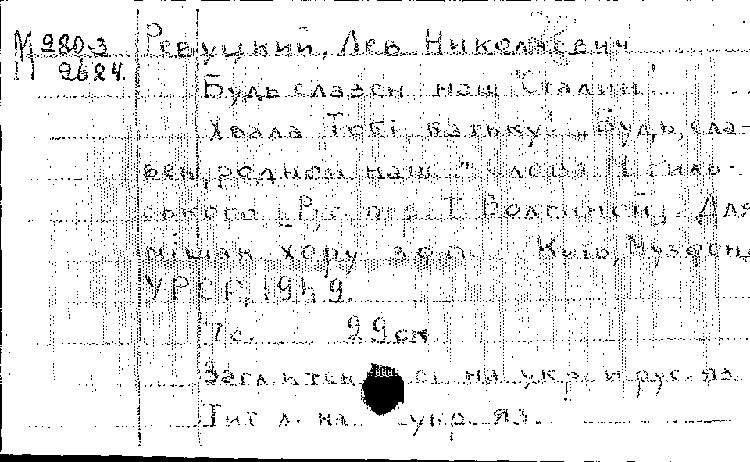 М 280-3 Ревуцкий, Лев Николаевич
9624
Будь славен наш Сталин!
Хвала Тобі, батьку! „Будь, сла-
вен, родной наш..." Слова М.
ського. Рус. пер. Т. Волгиной. Для
мішан хору. Київ, Музфонд
УРСР, 1949.
7 с. 29 см
Загл. и текст на укр. и рус. яз
Тит. л. на укр. яз.